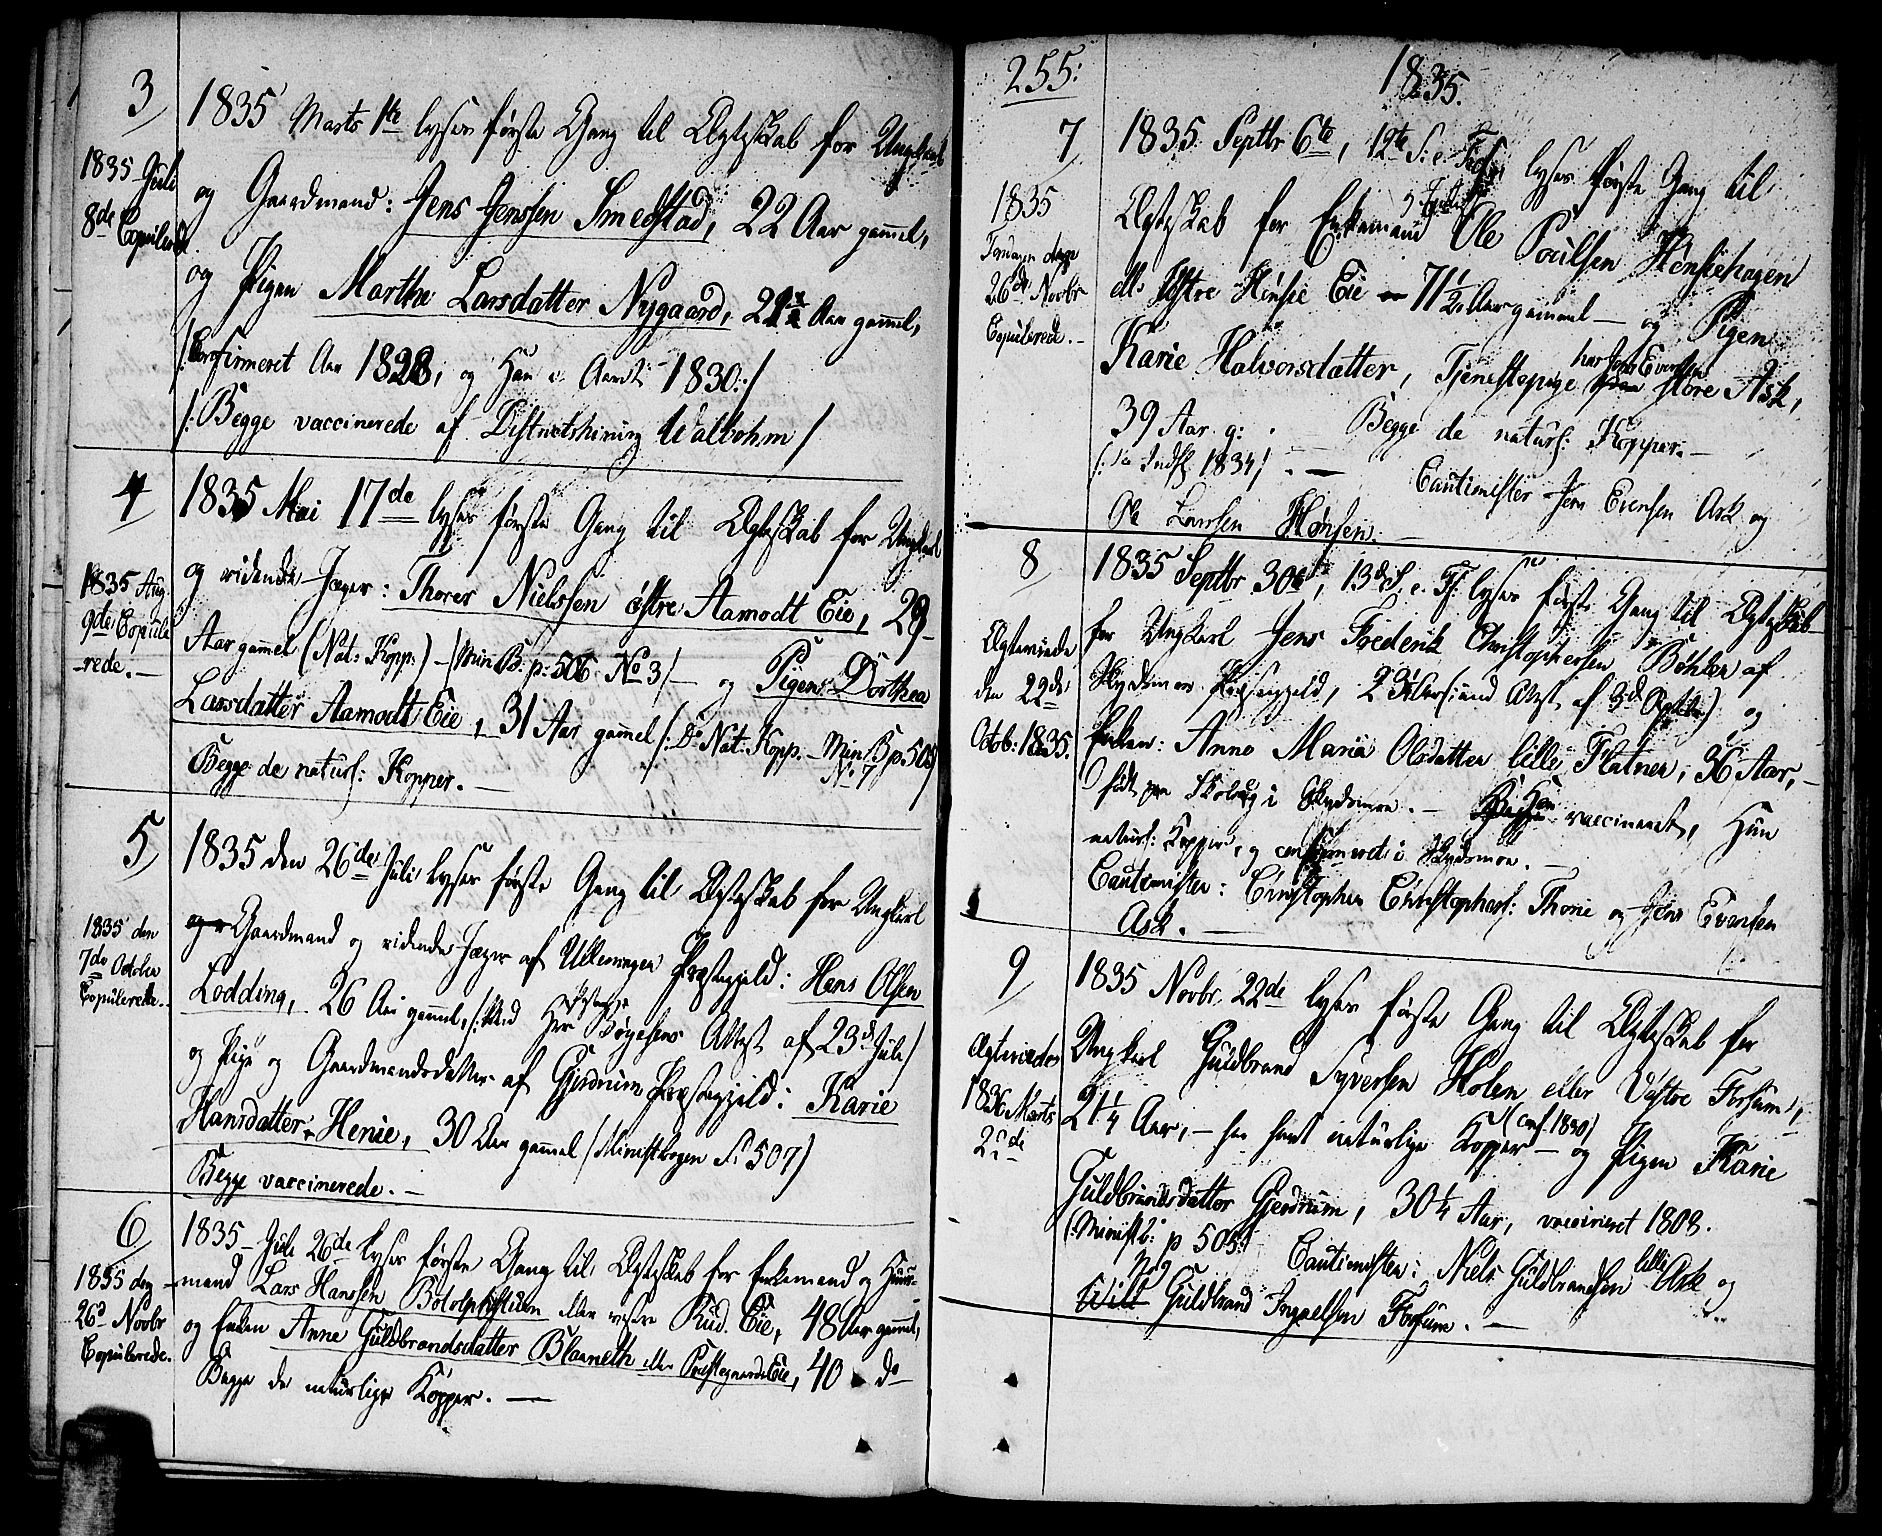 3
1835 Marts 1te lyses første Gang til Ægteskab for Ungkarl
1835 Juli
8de Copulerede
og Gaardmand: Jens Jenssen Smedstad, 22 Aar gammel,
og Pigen Marthe Larsdatter Nygaard, 21 Aar gammel,
/: Confirmeret Aar 1828, og Han i Aaret 1830 :/
/: Begge vaccinerede af Districtshirurg Walbohm /
4
1835 Mai 17de lyses første Gang til Ægteskab for Ungkarl
1835 Aug.
9de Copule
-rede. —
og ridende Jæger: Thorer Nielssen østre Aamodt Eie, 29-
Aar gammel (Nat: Kopp:) — (Min B: p: 506 No 3 / — og Pigen Dorthea
Larsdatter Aamodt Eie, 31 Aar gammel /: Do Nat: Kopp. — Min B p. 505)
No 7
Begge de naturl: Kopper. —
5
1835 den 26de Juli lyses første Gang til Ægteskab for Ungkarl
1835 den
7de October
Copulerede. —
og Gaardmand og ridende Jæger af Ullensager Præstegjeld: Hans Olsen
Lodding, 26 Aar gammel, /: Med Her Børgesens Attest af 23d Juli /
og Pige og Gaardmandsdatter af Gjerdrum Præstegjeld: Karie
Hansdatter Henie, 30 Aar gammel / Ministbogen S: 507)
Begge vaccinerede. —
6
1835 — Juli 26de lyses første Gang til Ægteskab for Enkemand og Huus-
1835 den
26d Novbr
Copulerede.
mand Lars Hanssen Bötolphstuen eller vestre Rud. Eie, 48 Aar gammel,
og Enken Anne Guldbrandsdatter Blaaneth eller Præstegaards Eie, 40 do
Begge de naturlige Kopper. —
255:
1835.
7
1835 Septbr 6te, 12te S: e. Tref: lyses første Gang til
1835
Torsdagen
26de Novbr
Copulerede. —
Ægteskab for Enkemand Ole Poulsen Hønsiehagen
ell: Østre Hønsie Eie — 71 1/2 Aar gammel — og Pigen
Karie Halvorsdatter, Tjenestepige hos Jens Evensen store Ask,
39 Aar g: . — Begge de naturl: Kopper. —
1834 / . — Cautionister Jens Evensen Ask og
Ole Larssen Hønsen. —
8
1835 Septbr 30te, 13d S. e. Tf: lyses første Gang til Ægteskab
Ægteviede
den 22de
Octob: 1835.
for Ungkarl Jens Frederik Christophersen Bøhler af
Skydsmoe Præstegjeld, 23 Aar (ind Attest af 3d Septbr) og
Enken: Anne Maria Olsdatter lille Flatner, 36 Aar, —
født paa Skoboug i Skydsmoe. — Han vaccineret, Hun
naturl: Kopper, og confirmeret i Skydsmoe. —
Cautionister: Christopher Christophers: Thorie og Jens Evensen
Ask. —
9
1835 Novbr. 22de lyses første Gang til Ægteskab for
Ægteviedes
1836 Marts
2de
Ungkarl Guldbrand Syversen Holen eller Vestre Forsum,
21 1/4 Aar, — har havt naturlige Kopper (conf. 1830) — og Pigen Karie
Guldbrandsdatter Gjerdrum, 30 1/4 Aar, vaccineret 1808.
(Ministb: p 505:
No 9 Cautionister: Niels Guldbrandsen lille Ask og
Guldbrand Ingvelsen Forsum. —